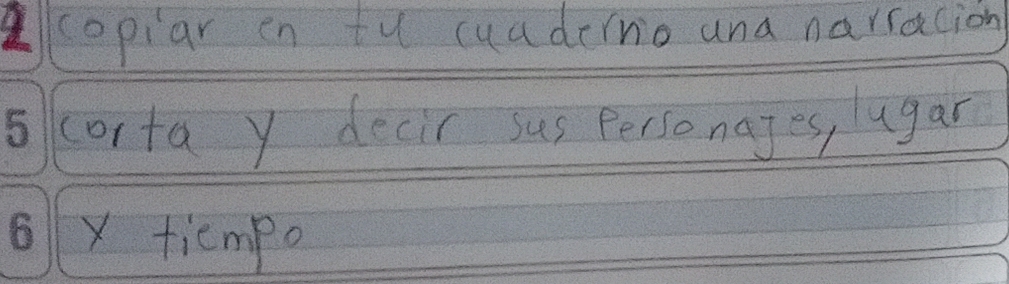 2 copiar en tu cuaderno una narracion
5 corta y decir sus Personajes, lugar
6 y tiempo